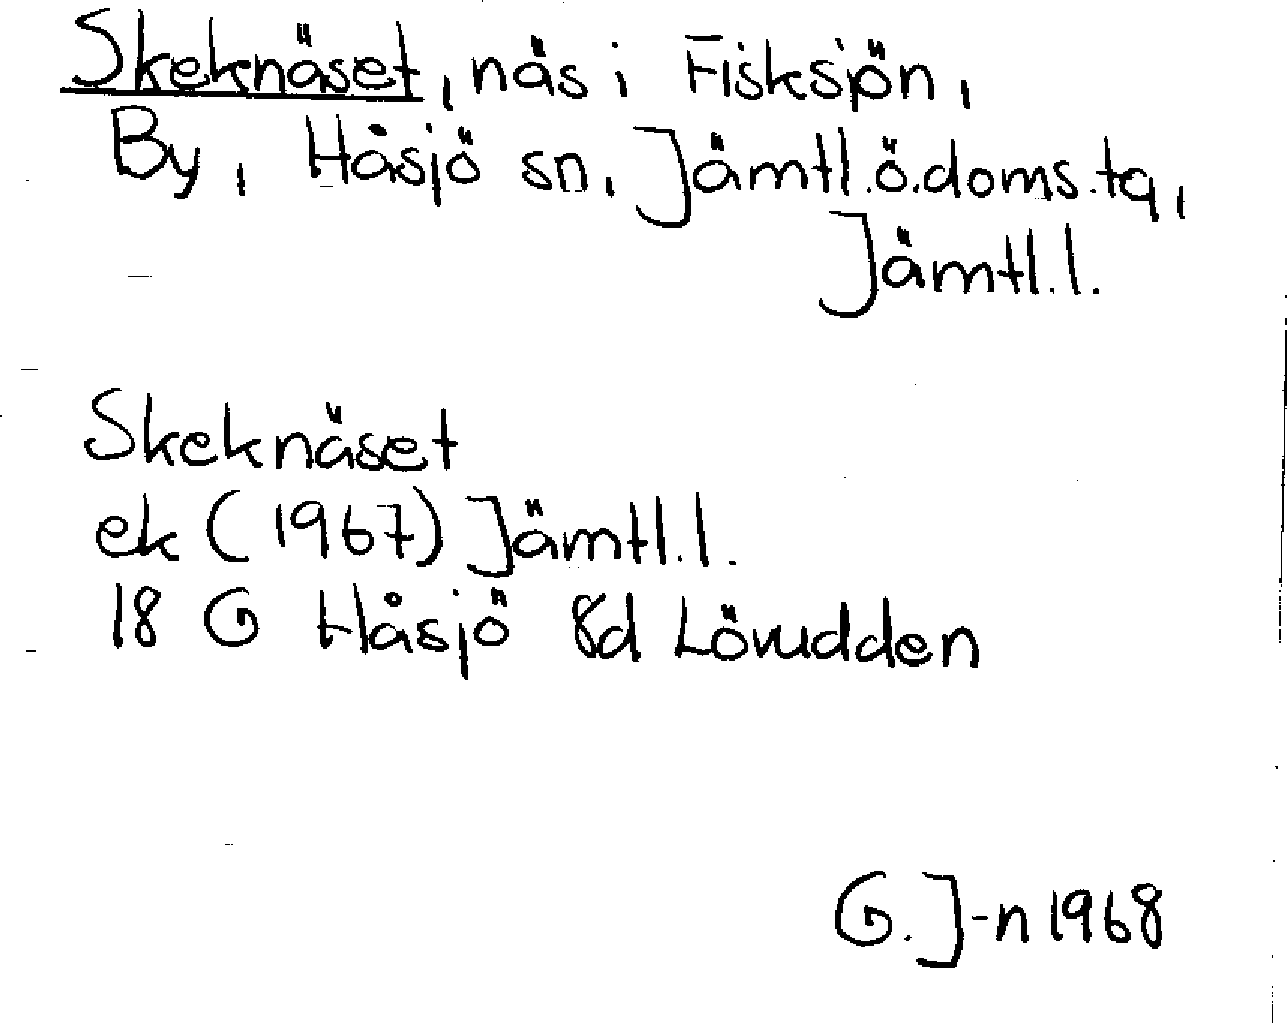 Skeknäset, näs i Fisksjön,
By, Håsjö sn, Jämtl.ö.doms.tq,
Jämtl.l.
Skeknäset
ek (1967) Jämtl.l.
18 G Håsjö 8d Lövudden
G. J-n 1968